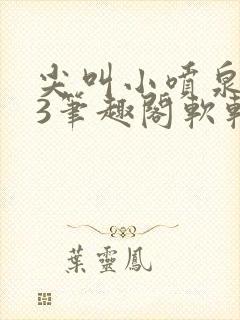 尖叫小噴泉
3筆趣閣軟
葉靈鳳